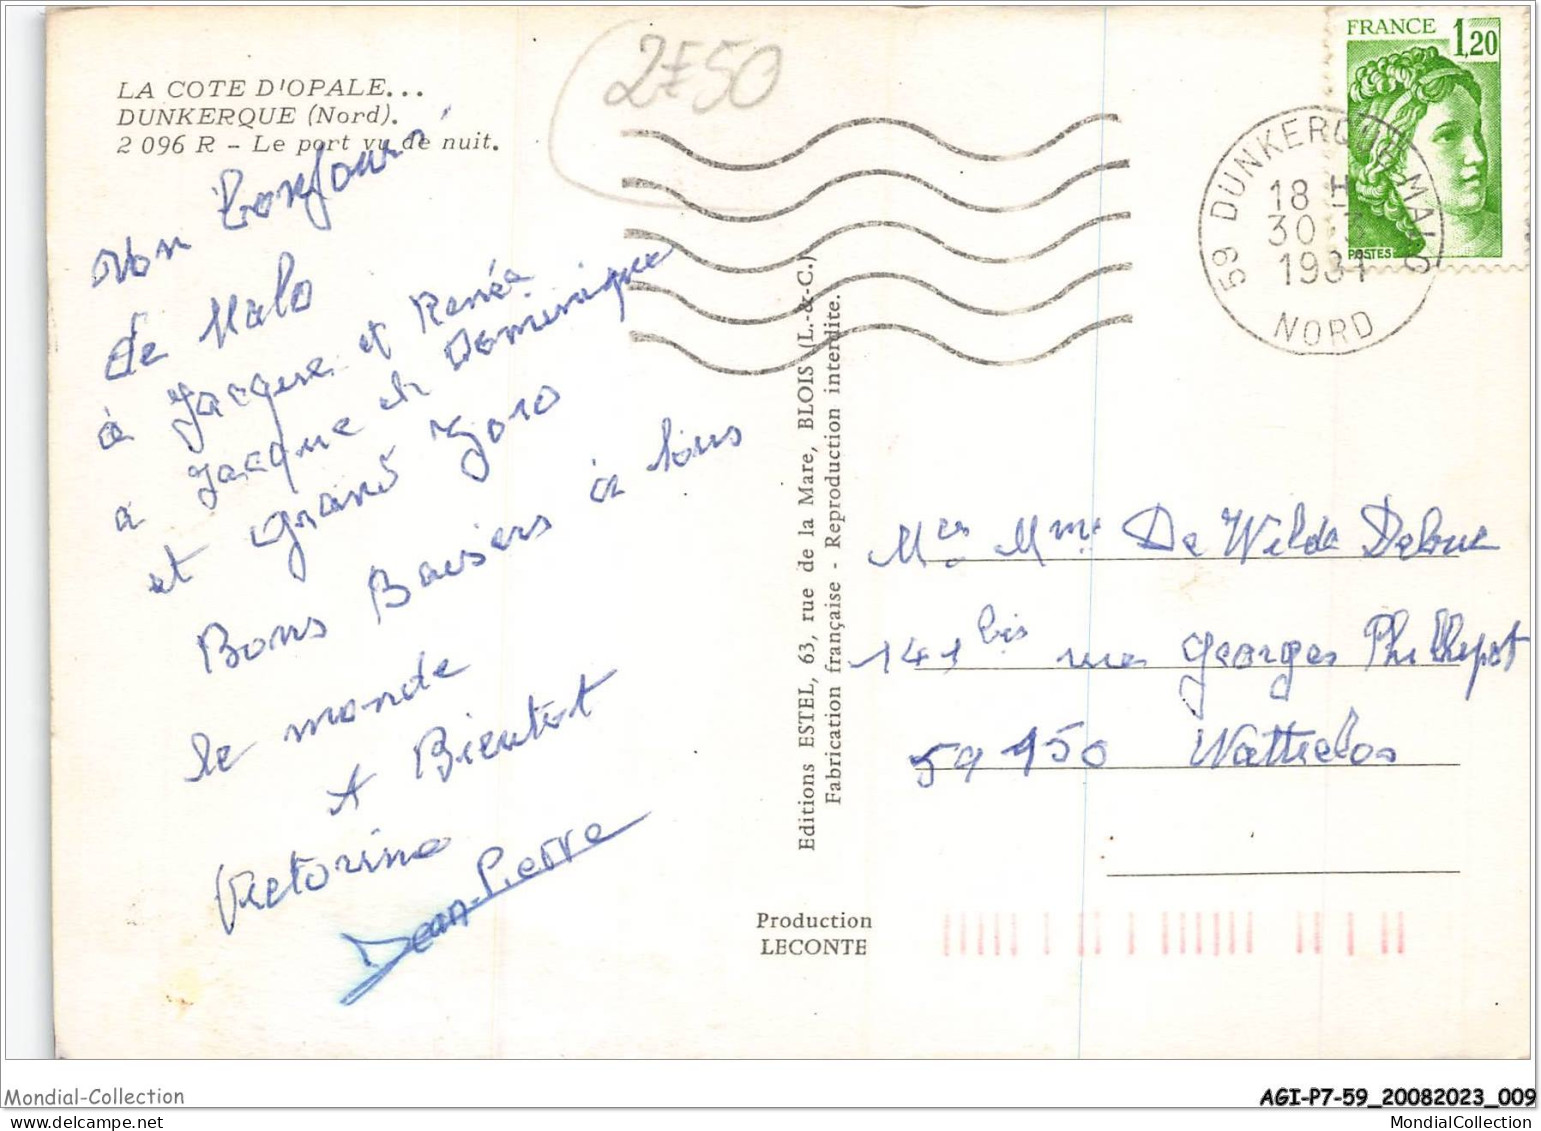 LA COTE D'OPALE...
DUNKERQUE (Nord).
2 096 R – Le port vu de nuit.
2F50
FRANCE 1,20
POSTES
59 DUNKERQUE MALO
18 H
30
1981
NORD
Mon Bonjour
de Malo
à Jacques et Renée
a Jacque et Dominique
et Grand
Bons Baisers à tous
le monde
A Bientot
Victorine
Jean-Pierre
Editions ESTEL, 63, rue de la Mare, BLOIS (L.-&-C.)
Fabrication française - Reproduction interdite.
Mr Mme De Wilde
141 bis rue Georges Philippot
59 150 Wattrelos
Production
LECONTE
Mondial-Collection
AGI-P7-59_20082023_009
MondialCollection